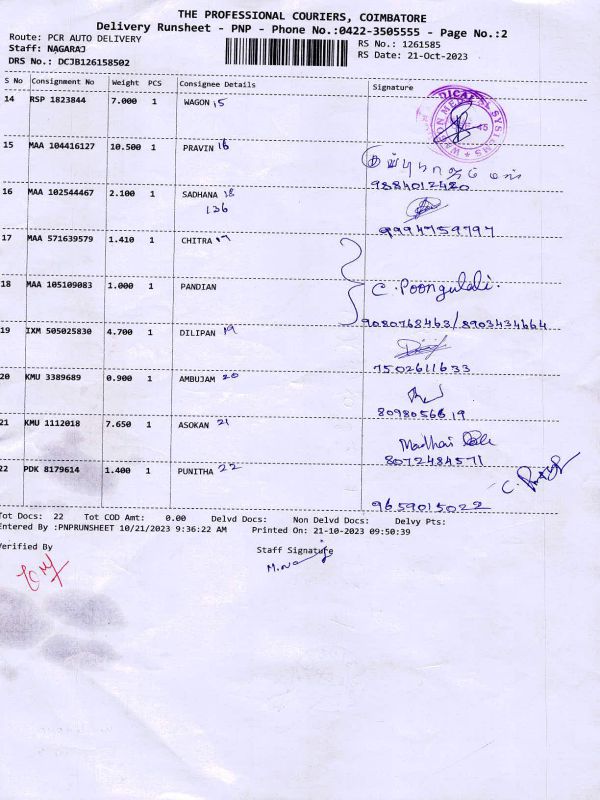 THE PROFESSIONAL COURIERS, COIMBATORE
Delivery Runsheet - PNP - Phone No.:0422-3505555 - Page No.:2
Route: PCR AUTO DELIVERY
RS No.: 1261585
Staff: NAGARAJ
RS Date: 21-Oct-2023
DRS No.: DCJB126158502
S No Consignment No Weight PCS Consignee Details Signature
14 RSP 1823844 7.000 1 WAGON 15
15 MAA 104416127 10.500 1 PRAVIN 16
9884012420
16 MAA 102544467 2.100 1 SADHANA 18
136
9994759797
17 MAA 571639579 1.410 1 CHITRA 17
18 MAA 105109083 1.000 1 PANDIAN C. Poongulali.
9080768463/8903434664
19 IXM 505025830 4.700 1 DILIPAN 19
7502611633
20 KMU 3389689 0.900 1 AMBUJAM 20
8098056819
21 KMU 1112018 7.650 1 ASOKAN 21
8072484571
22 PDK 8179614 1.400 1 PUNITHA 22
9659015022
Tot Docs: 22 Tot COD Amt: 0.00 Delvd Docs: Non Delvd Docs: Delvy Pts:
Entered By :PNPRUNSHEET 10/21/2023 9:36:22 AM Printed On: 21-10-2023 09:50:39
Verified By Staff Signature